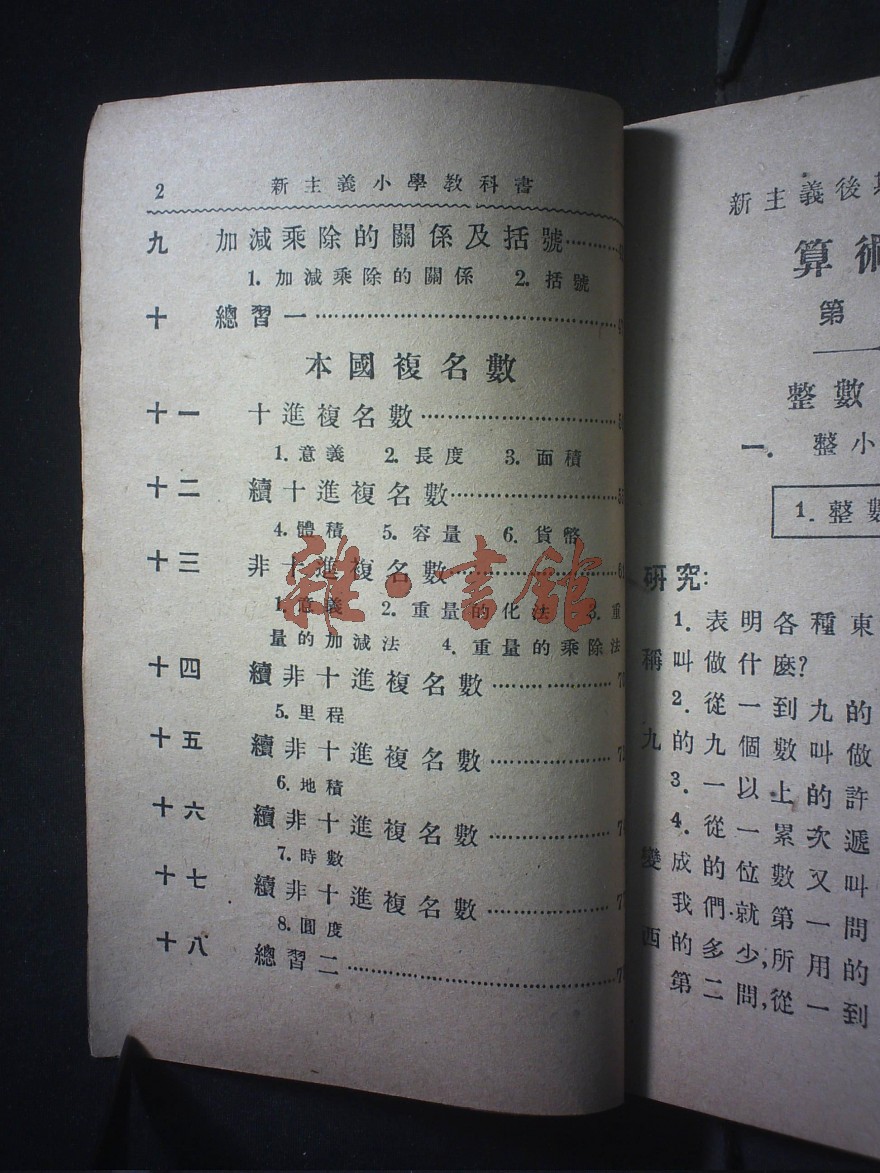 2 新主義小學教科書
九 加減乘除的關係及括號
1. 加減乘除的關係 2. 括號
十 總習一
本國複名數
十一 十進複名數
1. 意義 2. 長度 3. 面積
十二 續十進複名數
4. 體積 5. 容量 6. 貨幣
十三 非十進複名數
1. 意義 2. 重量的化法 3. 重
量的加減法 4. 重量的乘除法
十四 續非十進複名數
5. 里程
十五 續非十進複名數
6. 地積
十六 續非十進複名數
7. 時數
十七 續非十進複名數
8. 圓度
十八 總習二
雜·書館
新主義後
算術
第
整數
一. 整小
1. 整數
研究:
1. 表明各種東
稱叫做什麼?
2. 從一到九的
九的九個數叫做
3. 一以上的許
4. 從一累次遞
變成的位數又叫
我們就第一問
西的多少,所用的
第二問,從一到